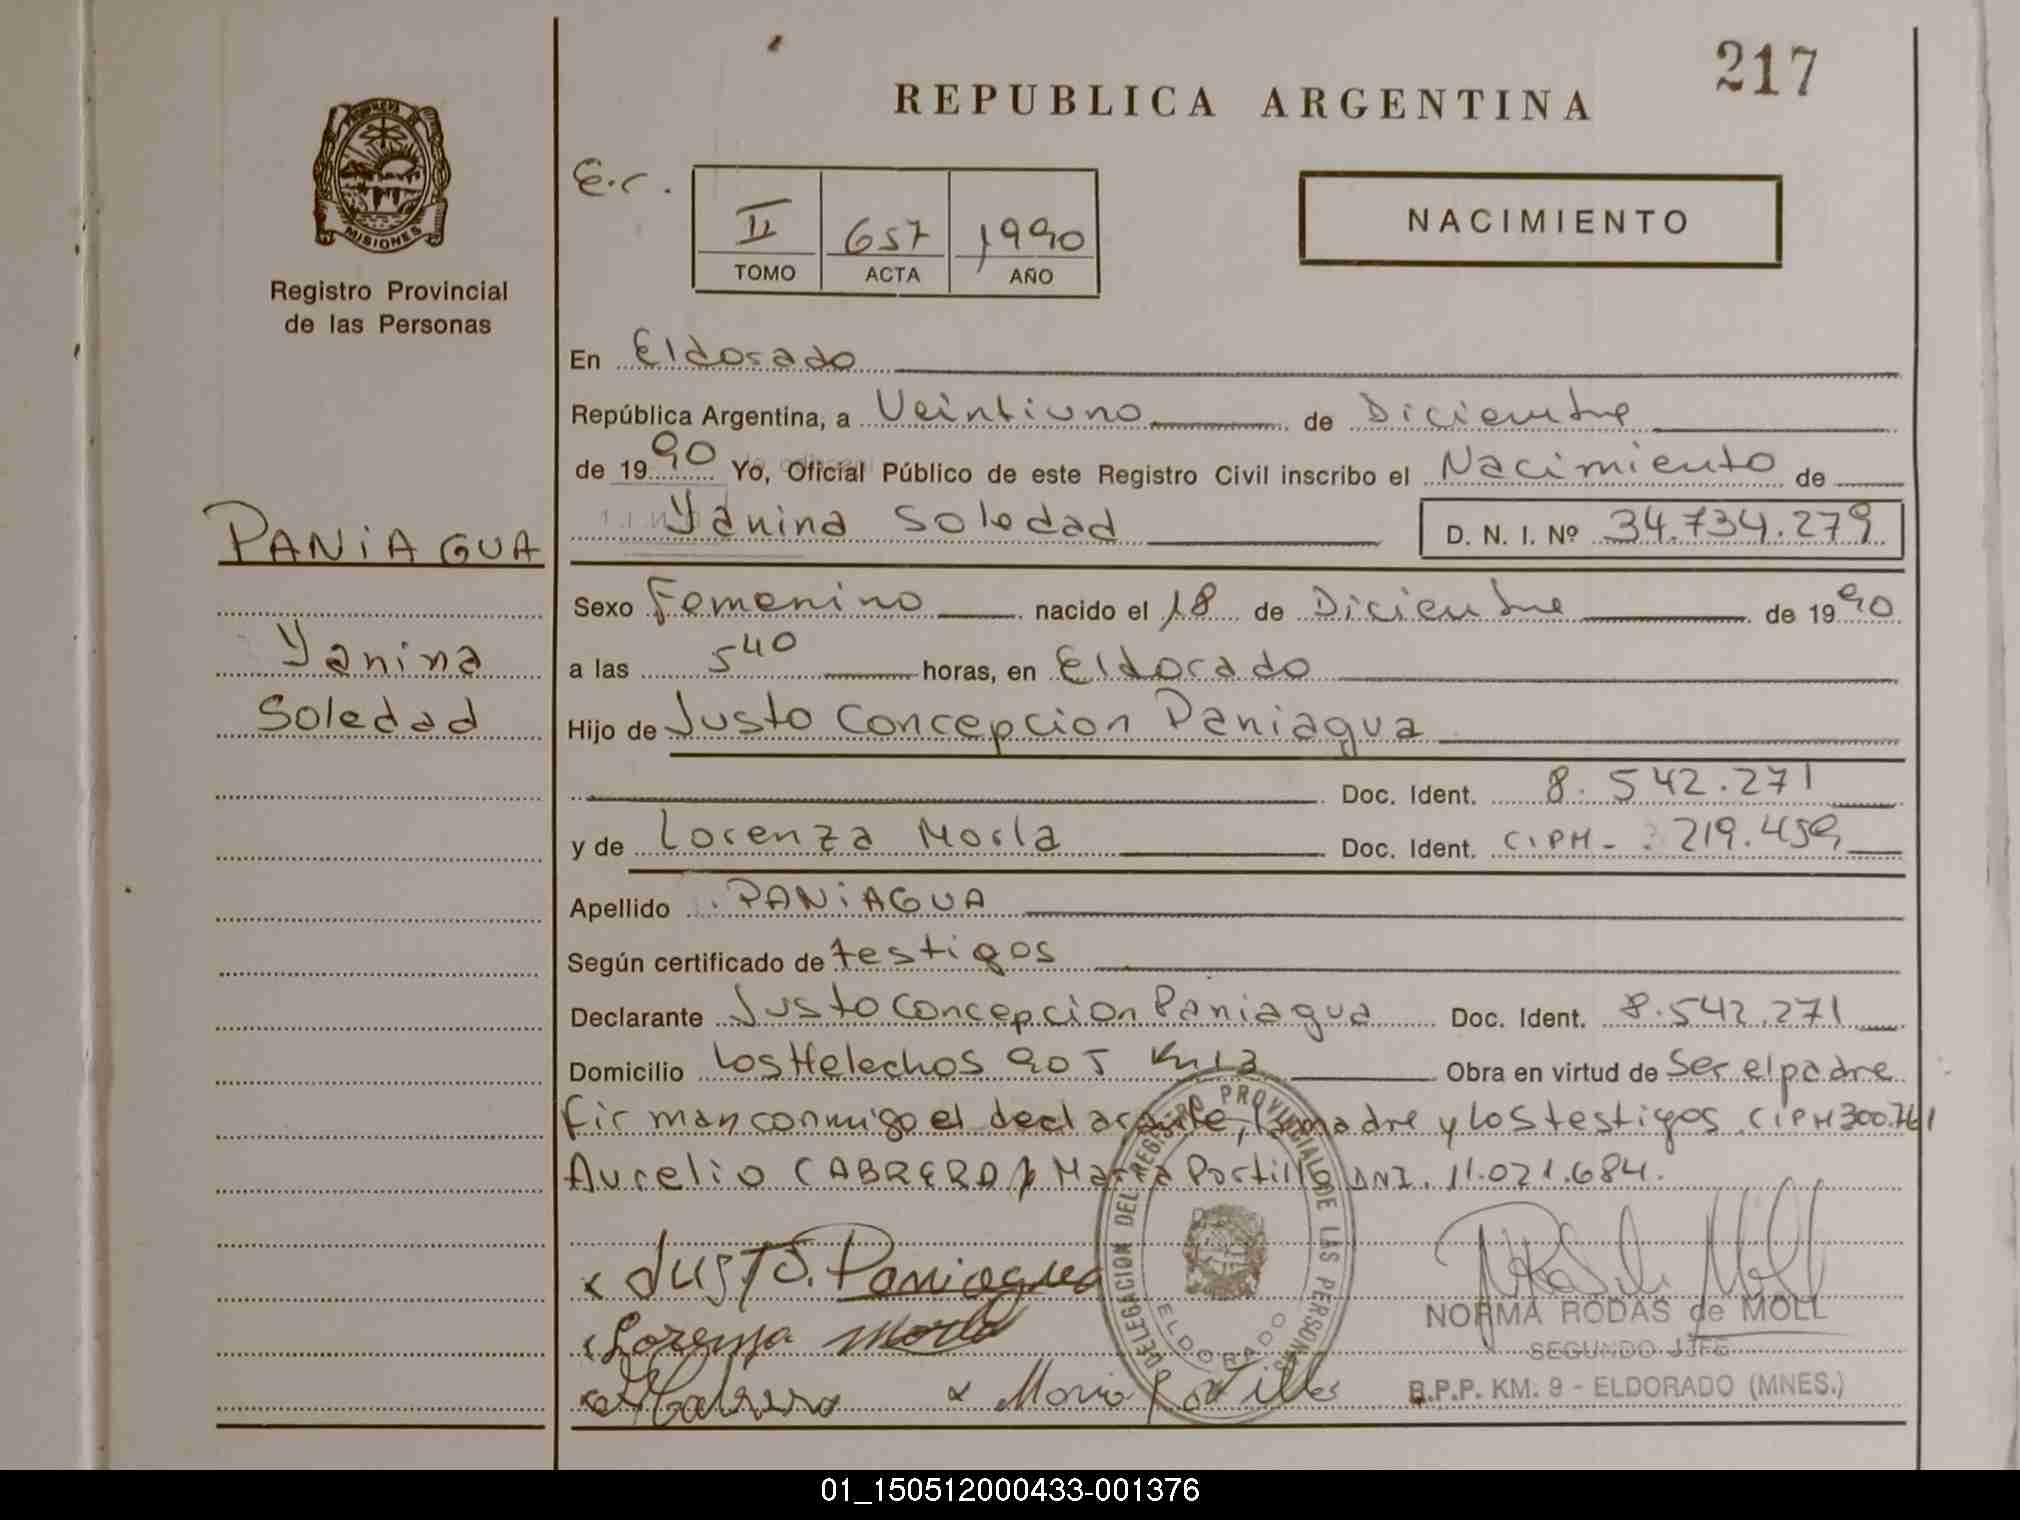 217
REPUBLICA ARGENTINA
E.C.
II 657 1990
TOMO ACTA AÑO
NACIMIENTO
MISIONES
Registro Provincial
de las Personas
En Eldorado
República Argentina, a Veintiuno de Diciembre
de 1990 Yo, Oficial Público de este Registro Civil inscribo el Nacimiento de
PANIAGUA
Yanina Soledad D. N. I. Nº 34.734.279
Sexo Femenino nacido el 18 de Diciembre de 1990
Yanina
a las 5 40 horas, en Eldorado
Soledad
Hijo de Justo Concepcion Paniagua
Doc. Ident. 8.542.271
y de Lorenza Morla Doc. Ident. CIPM - 219.459
Apellido PANIAGUA
Según certificado de testigos
Declarante Justo Concepcion Paniagua Doc. Ident. 8.542.271
Domicilio Los Helechos 905 Km 13 Obra en virtud de Ser el padre
firman conmigo el declarante, la madre y los testigos CIPM 300.761
Aurelio CABRERA y Maria Portillo DNI. 11.021.684.
x Justo. Paniagua
Lorenza Morla
Cabrera x Maria Portillo
DELEGACION DEL REGISTRO PROVINCIAL DE LAS PERSONAS
ELDORADO
NORMA RODAS de MOLL
SEGUNDO JEFE
R.P.P. KM. 9 - ELDORADO (MNES.)
01_150512000433-001376